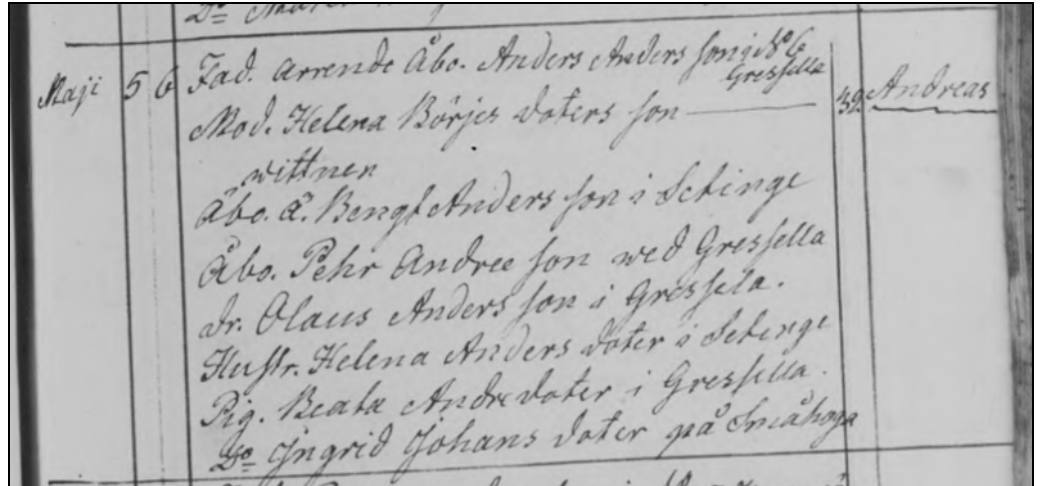 Maji 5 6 Fad. Arrende Åbo. Anders Anders son i No 6 Gressella 39. Andreas
Mod. Helena Börjes doters son
wittnen
Åbo. Bengt Anders son i Setinge
Åbo. Pehr Andree son wed Gressella
Dr. Olaus Anders son i Gressela.
Hustr. Helena Anders doter i Setinge
Pig. Beata Andredoter i Gressella.
Do Jngrid Johans doter på Småhoga